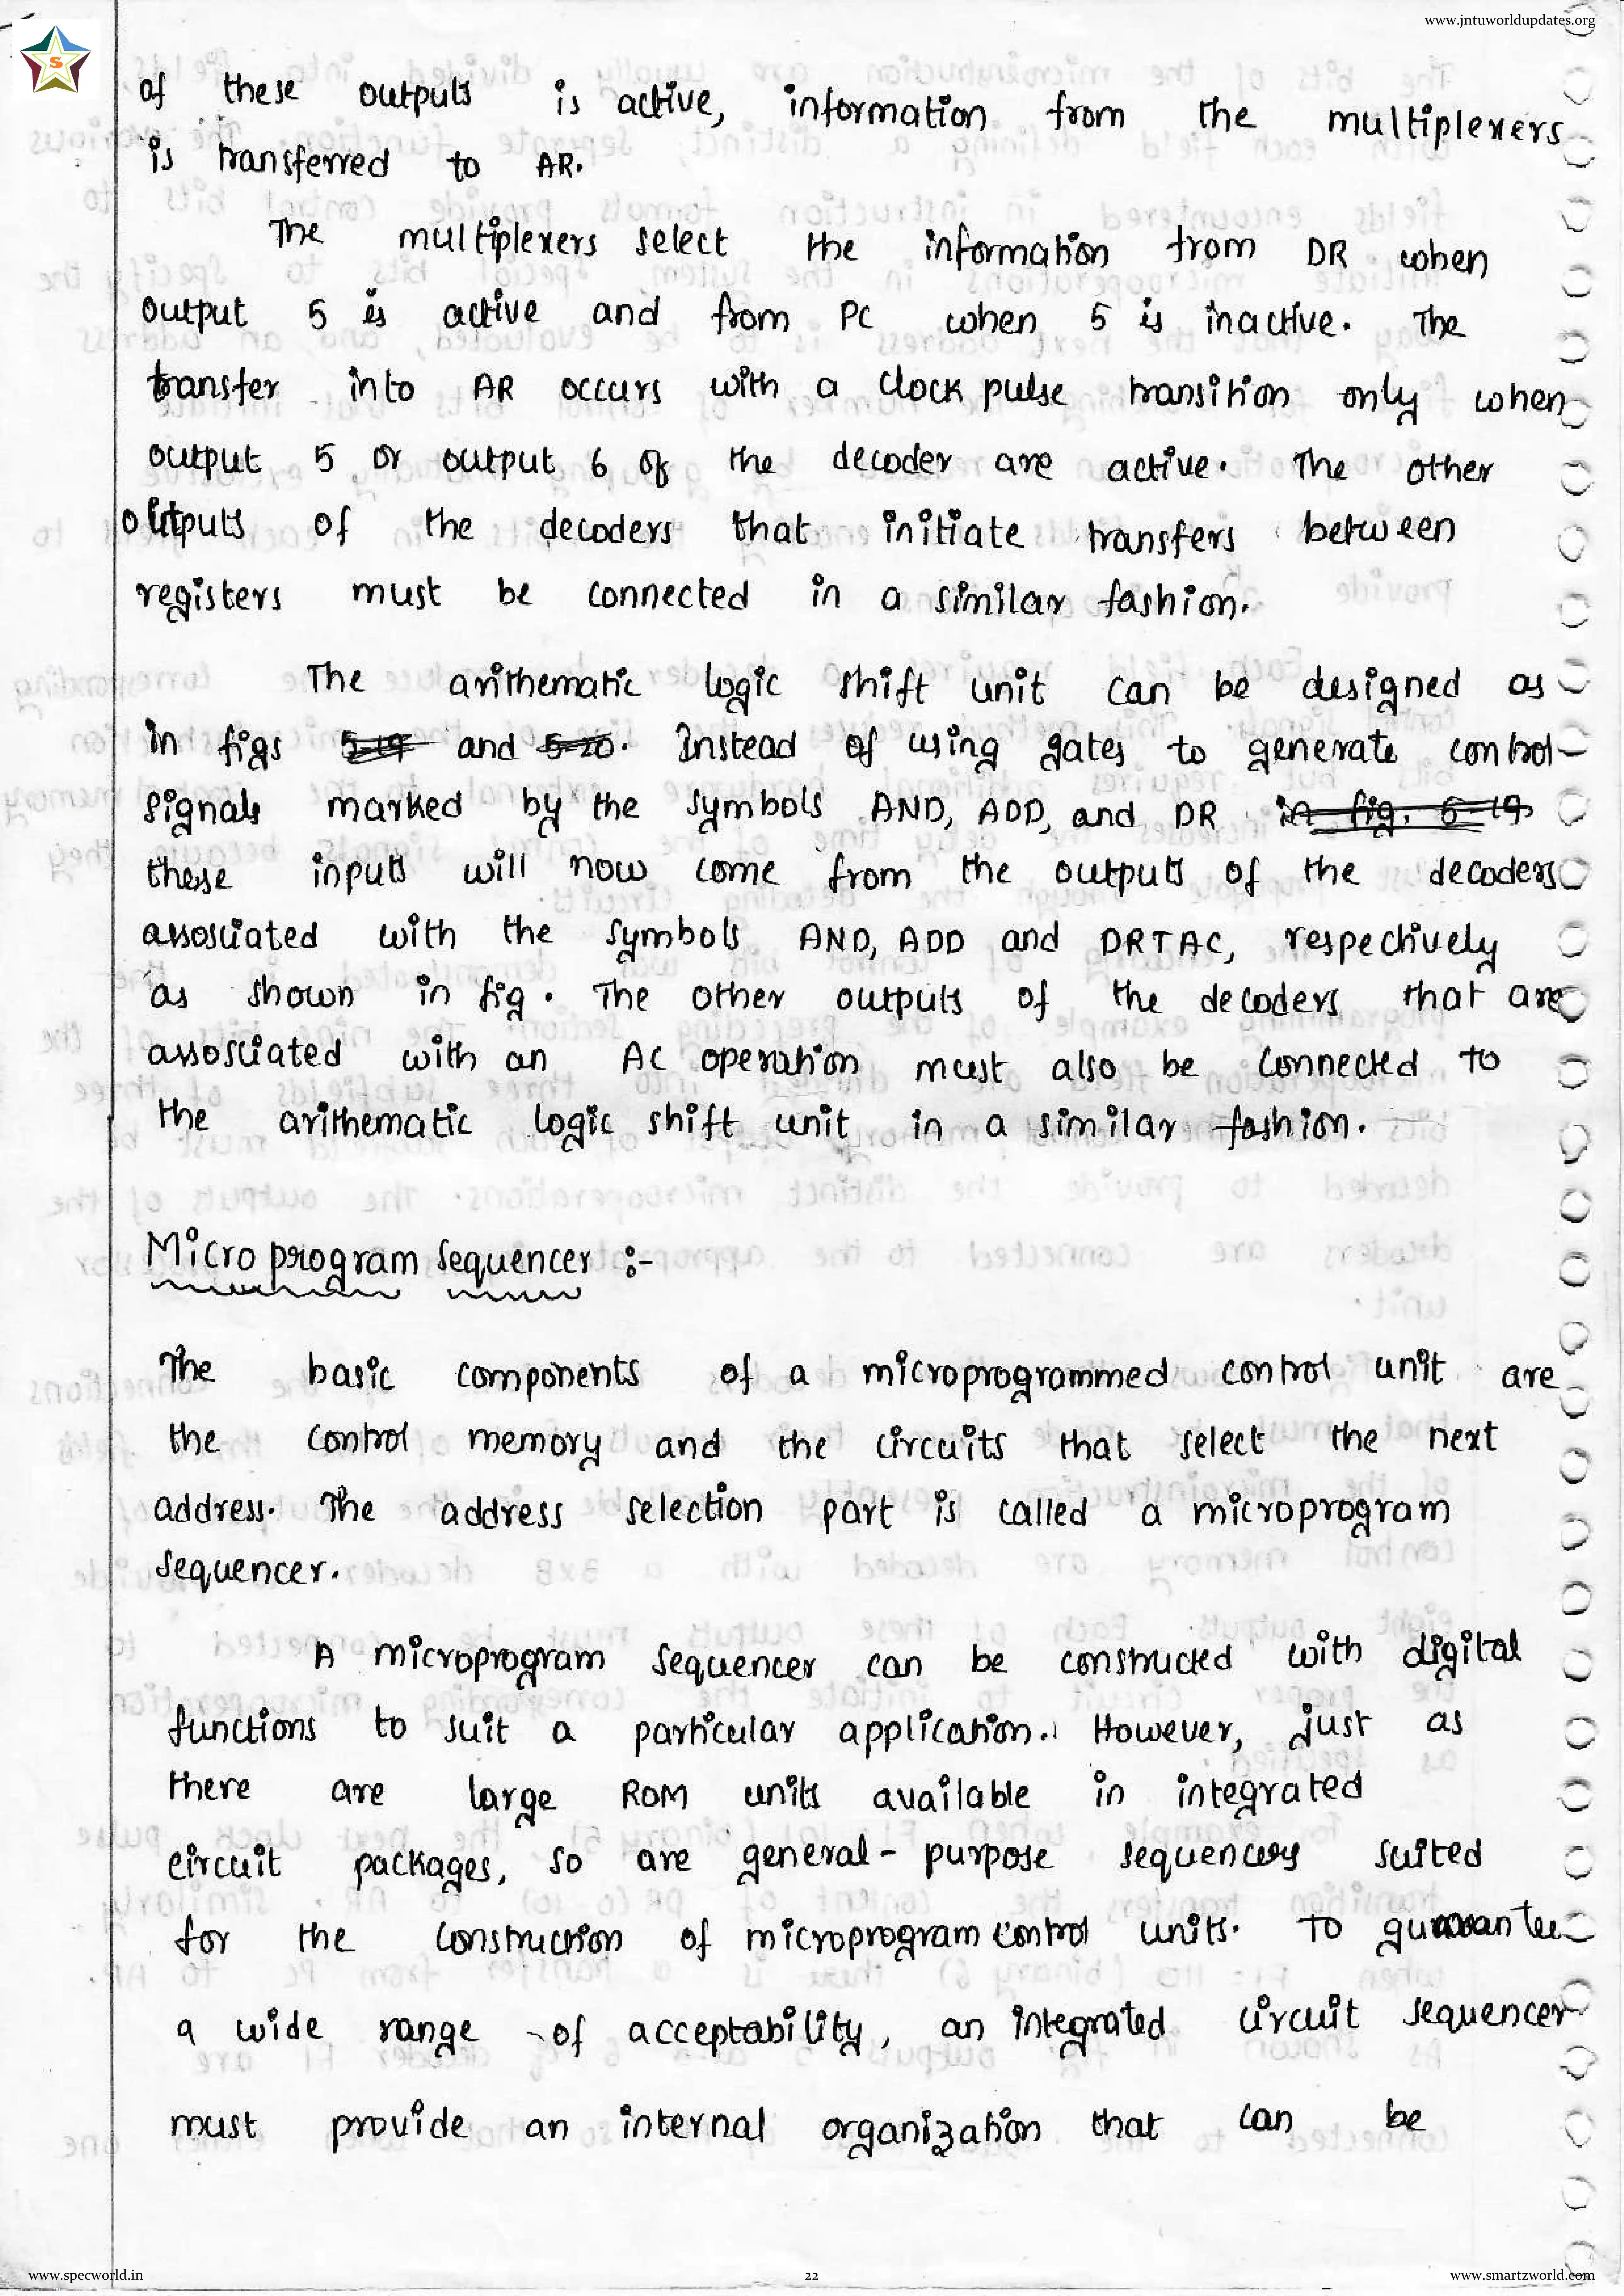 www.jntuworldupdates.org
S
of these outputs is active, information from the multiplexers
is transferred to AR.
The multiplexers select the information from DR when
output 5 is active and from PC when 5 is inactive. The
transfer into AR occurs with a clock pulse transition only when
output 5 or output 6 of the decoder are active. The other
outputs of the decoders that initiate transfers between
registers must be connected in a similar fashion.
The arithematic logic shift unit can be designed as
in figs 5-19 and 5-20. Instead of using gates to generate control
signals marked by the symbols AND, ADD, and DR in fig. 5-19
these inputs will now come from the outputs of the decoders
assosciated with the symbols AND, ADD and DRTAC, respectively
as shown in fig. The other outputs of the decoders that are
assosciated with an AC operation must also be connected to
the arithematic logic shift unit in a similar fashion.
Micro program sequencer :-
The basic components of a microprogrammed control unit are
the control memory and the circuits that select the next
address. The address selection part is called a microprogram
sequencer.
A microprogram sequencer can be constructed with digital
functions to suit a particular application. However, just as
there are large ROM units available in integrated
circuit packages, so are general-purpose sequencers suited
for the construction of microprogram control units. To guarantee
a wide range of acceptability, an integrated circuit sequencer
must provide an internal organization that can be
www.specworld.in
22
www.smartzworld.com